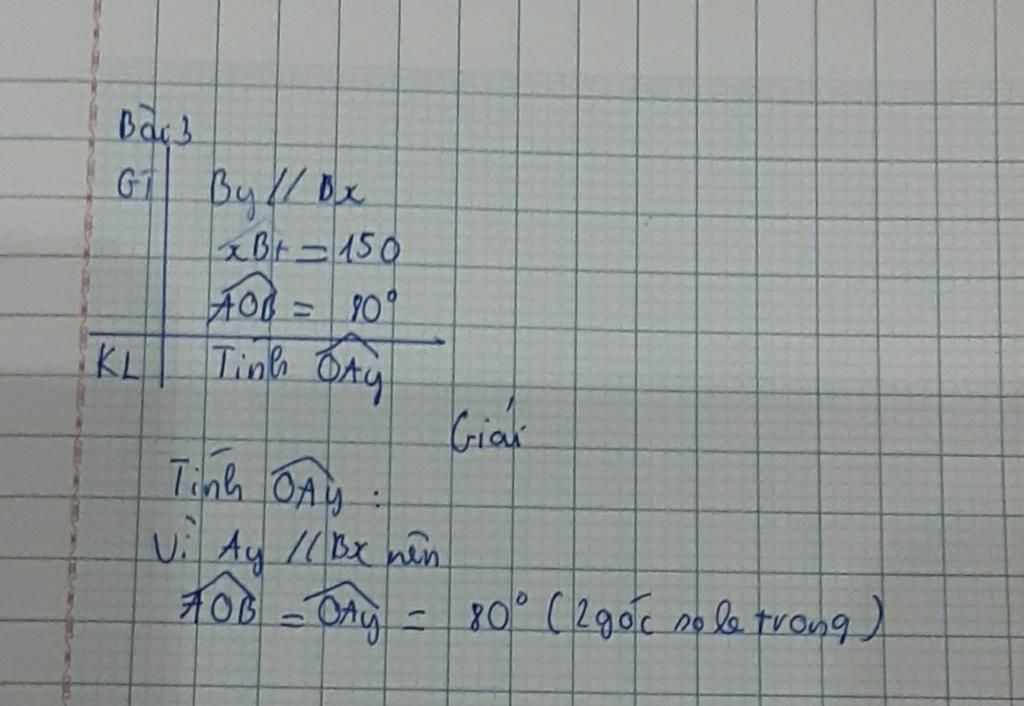 Bài 3
GT By // Bx
xBt = 150
AOB = 80°
KL Tính OAy
Giải
Tính OAy :
Vì Ay // Bx nên
AOB = OAy = 80° (2 góc so le trong)